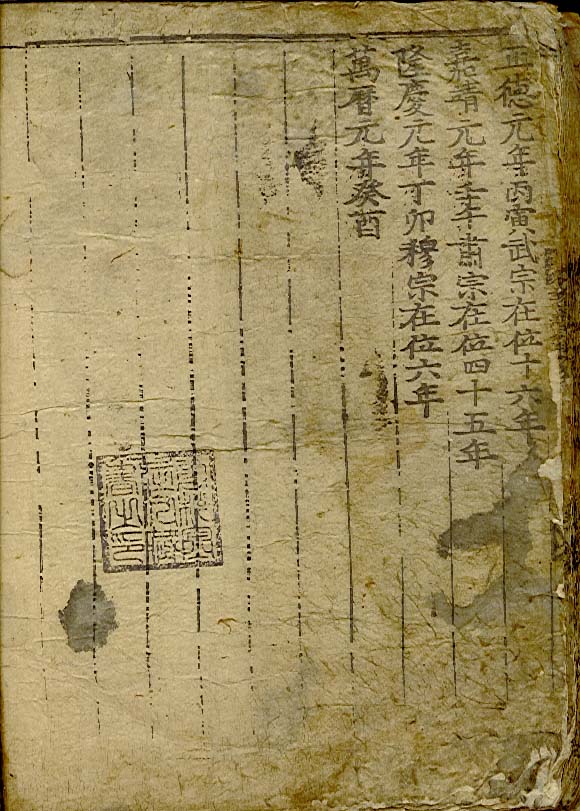 正德元年丙寅武宗在位十六年
嘉靖元年壬午肅宗在位四十五年
隆慶元年丁卯穆宗在位六年
萬曆元年癸酉